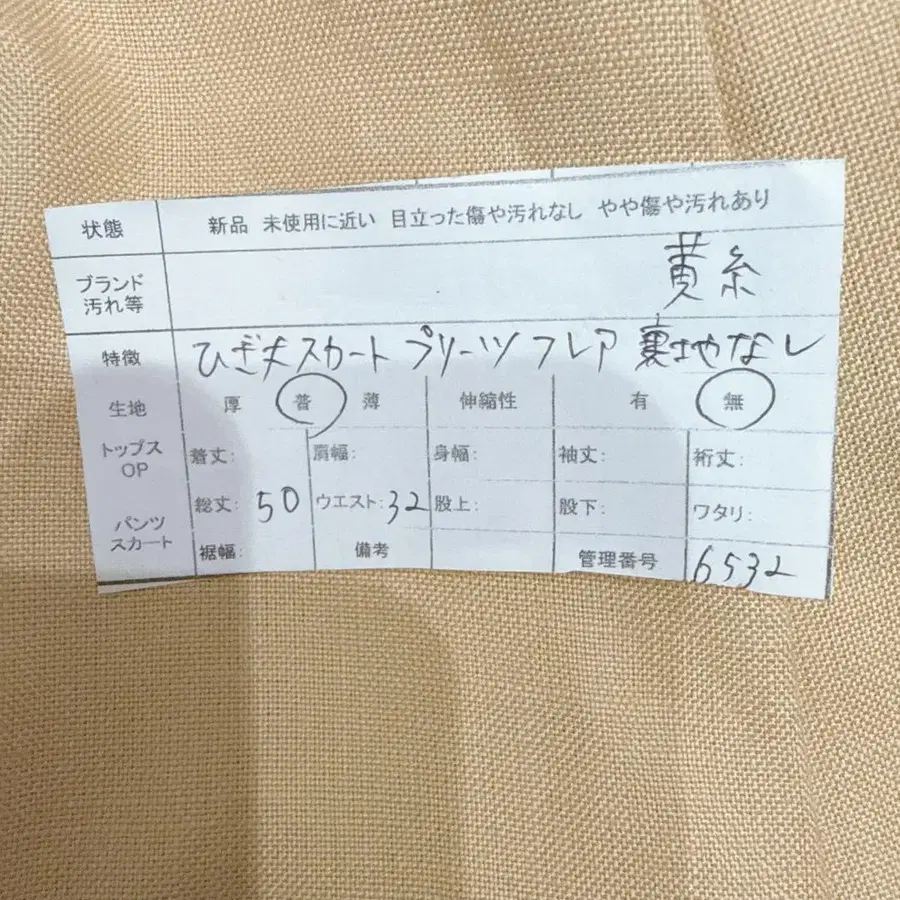 状態 新品 未使用に近い 目立った傷や汚れなし やや傷や汚れあり
ブランド
汚れ等 黄糸
特徴 ひざ丈スカート プリーツ フレア 裏地なし
生地 厚 普 薄 伸縮性 有 無
トップス
OP 着丈: 肩幅: 身幅: 袖丈: 裄丈:
パンツ
スカート 総丈: 50 ウエスト: 32 股上: 股下: ワタリ:
裾幅: 備考 管理番号 6532